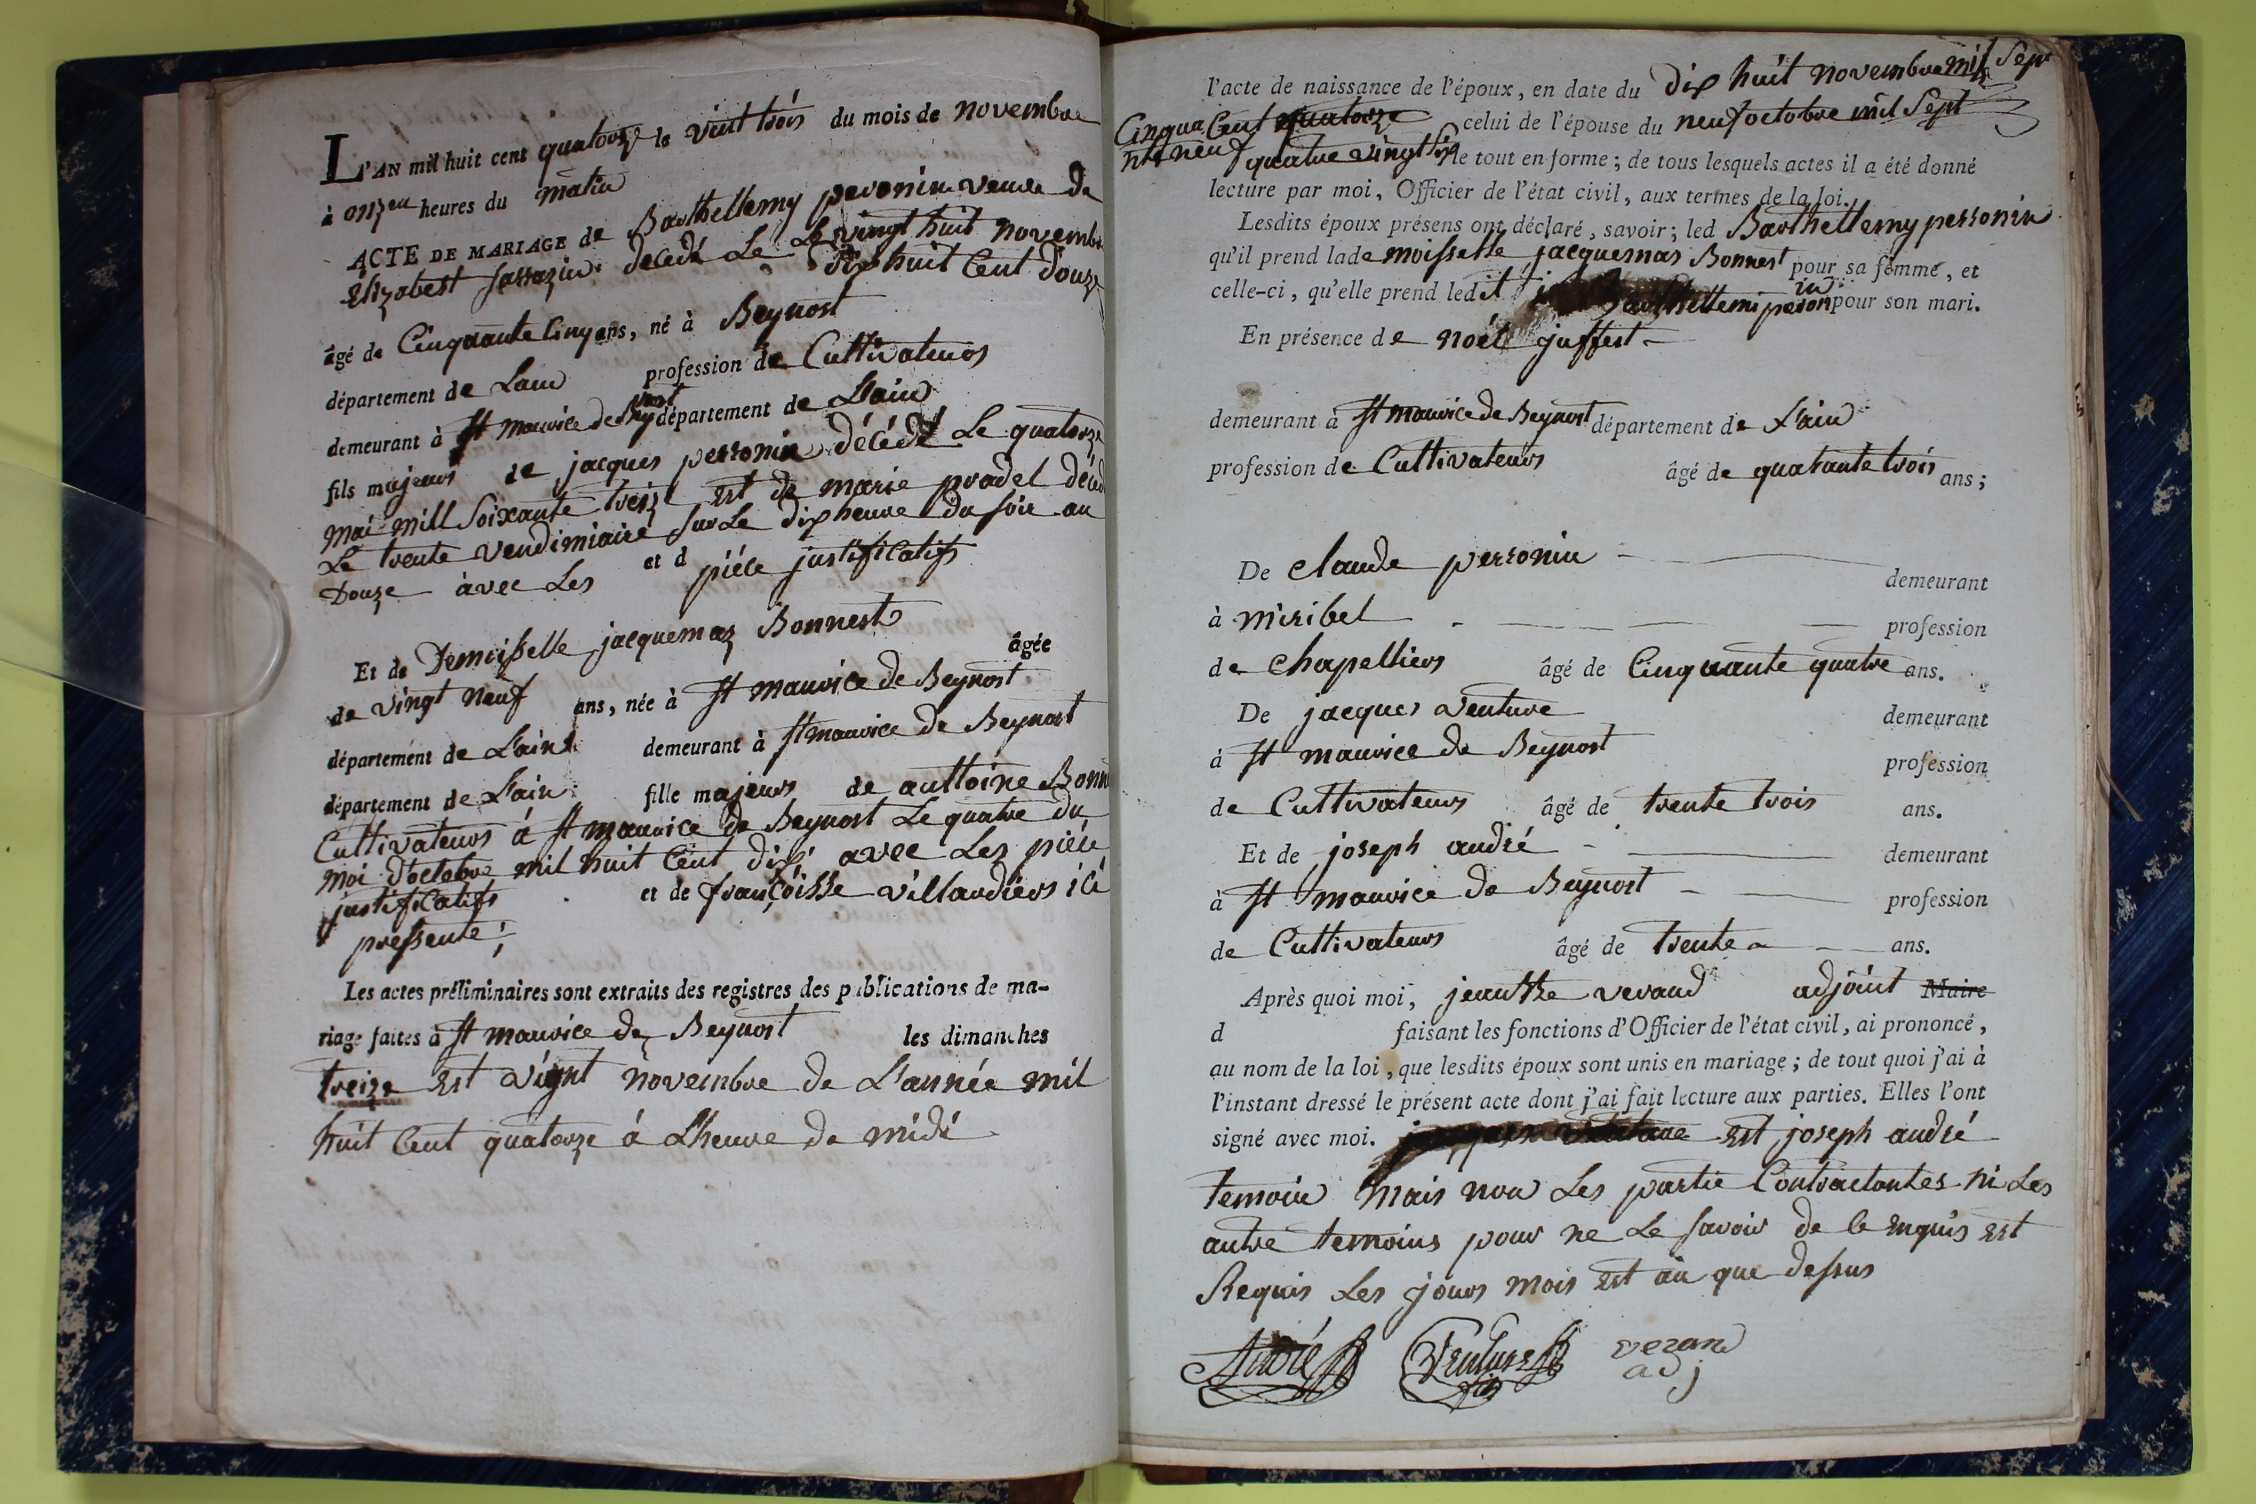 L'AN mil huit cent quatorze le vint trois du mois de novembre
à onzeu heures du matin
ACTE DE MARIAGE de Barthellemy peronin veuve de
Elizabest sarrazin decedé Le Le vingt huit novembre
dix huit Cent douze
âgé de Cinquante Cinq ans, né à Beynost
département de Lain profession de Cultivateurs
demeurant à St maurice de Beynost département de L'ain
fils majeurs de jacques perronin décédé Le quatorze
mai mill soixante treize Est de marie pradel décéd
Le trente vendimiaire sur Le dix heure du soir an
Douze avec Les et d piéce justificatifs
Et de Demoiselle jacquemaz Bonnest âgée
de vingt neuf ans, née à St maurice de Beynost
département de L'ain demeurant à St maurice de Beynost
département de L'ain fille majeurs de anttoine Bonn
Cultivateurs á St maurice de Beynost Le quatre du
moi d'octobre mil huit Cent dix avec Les piéce
justificatifs et de françoisse villandiers ici
pressente;
Les actes préliminaires sont extraits des registres des publications de ma-
riage faites à St maurice de Beynost les dimanches
treize Est vignt novembre de L'année mil
huit Cent quatorze á Lheure de midi
l'acte de naissance de l'époux, en date du dix huit novembre mil Sept
Cinqua Cent quatorze celui de l'épouse du neuf octobre mil Sept
nte neuf quatre vingt six le tout en forme; de tous lesquels actes il a été donné
lecture par moi, Officier de l'état civil, aux termes de la loi.
Lesdits époux présens ont déclaré, savoir; led Barthellemy perronin
qu'il prend lade moisselle jacquemas Bonnest pour sa femme, et
celle-ci, qu'elle prend ledit Barthellemi peronin pour son mari.
En présence de noél juffest
demeurant à St maurice de Beynost département de L'ain
profession de Cultivateurs âgé de quarante trois ans;
De claude perronin demeurant
à miribel profession
de Chapelliers âgé de Cinquante quatre ans.
De jacques venture demeurant
à St maurice de Beynost profession
de Cultivateurs âgé de trente trois ans.
Et de joseph andré demeurant
à St maurice de Beynost profession
de Cultivateurs âgé de trente ans.
Après quoi moi, jeanthe verand adjoint Maire
d faisant les fonctions d'Officier de l'état civil, ai prononcé,
au nom de la loi, que lesdits époux sont unis en mariage; de tout quoi j'ai à
l'instant dressé le présent acte dont j'ai fait lecture aux parties. Elles l'ont
signé avec moi. Est joseph andré
temoin mais non Les partie Contractantes ni Les
autre temoins pour ne Le savoir de Ce enquis Est
Requis Les jours mois Est an que dessus
André Venture fils verand
adj